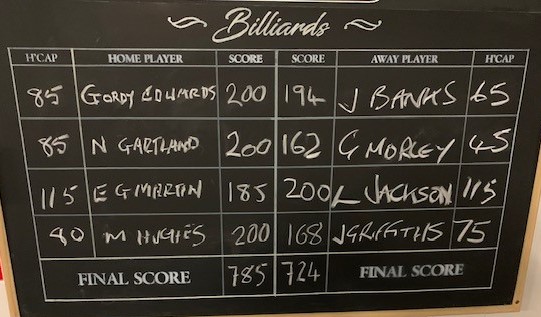 Billiards
H'CAP HOME PLAYER SCORE SCORE AWAY PLAYER H'CAP
85 GORDY EDWARDS 200 194 J BANKS 65
85 N GARTLAND 200 162 G MORLEY 45
115 E G MARTIN 185 200 L JACKSON 115
80 M HUGHES 200 168 J GRIFFITHS 75
FINAL SCORE 785 724 FINAL SCORE